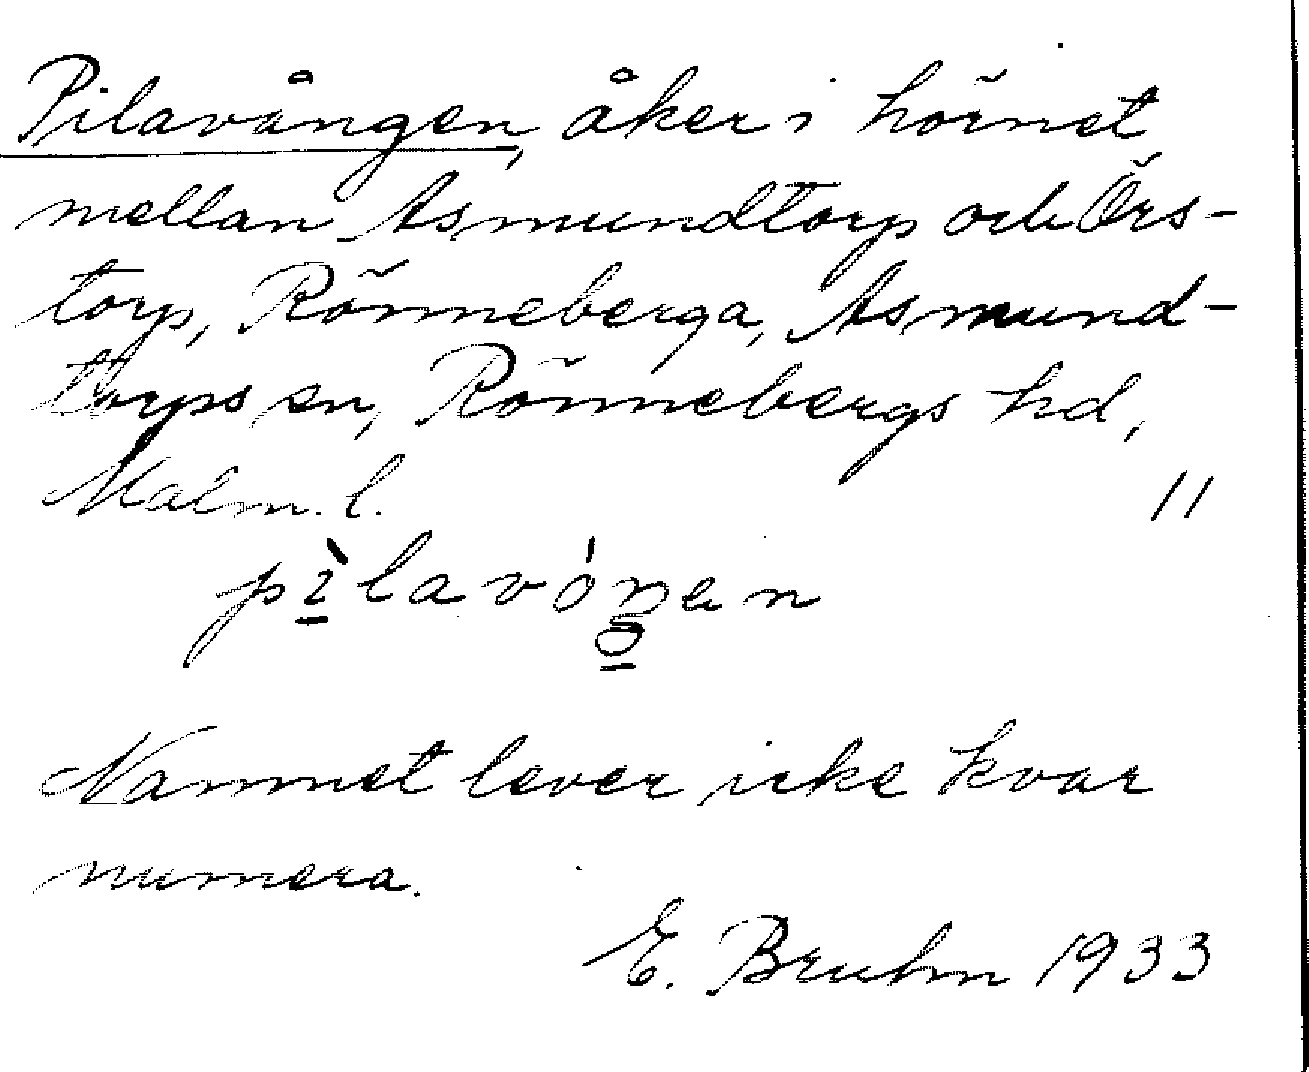 Pilavången, åker i hörnet
mellan Asmundtorp och Örs-
torp, Rönneberga, Asmund-
torps sn, Rönnebergs hd,
Malm. l. 11
pìlavóŋen
Namnet lever icke kvar
numera.
E. Bruhn 1933